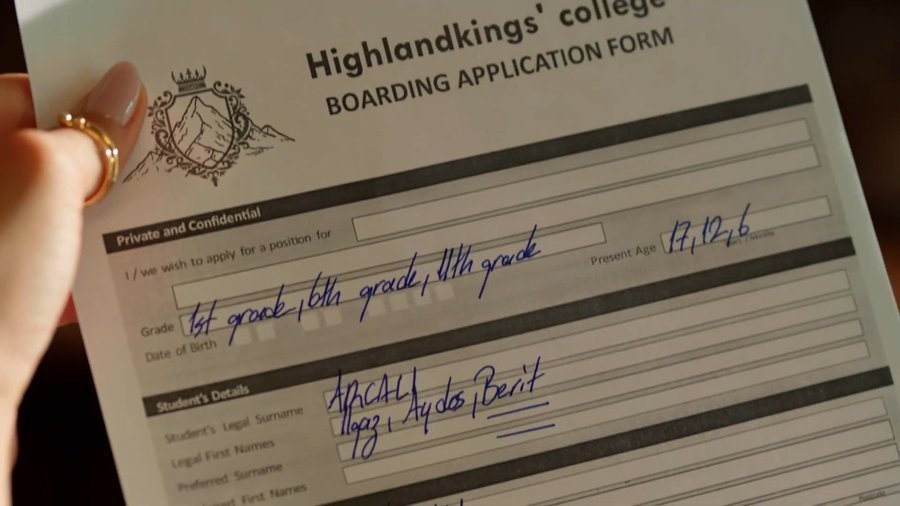 Highlandkings' college
BOARDING APPLICATION FORM
Private and Confidential
I / we wish to apply for a position for
Grade 1st grade, 6th grade, 11th grade Present Age 17, 12, 6
Date of Birth
Student's Details
Student's Legal Surname ARCALI
Legal First Names Ilgaz, Aydos, Berit
Preferred Surname
First Names